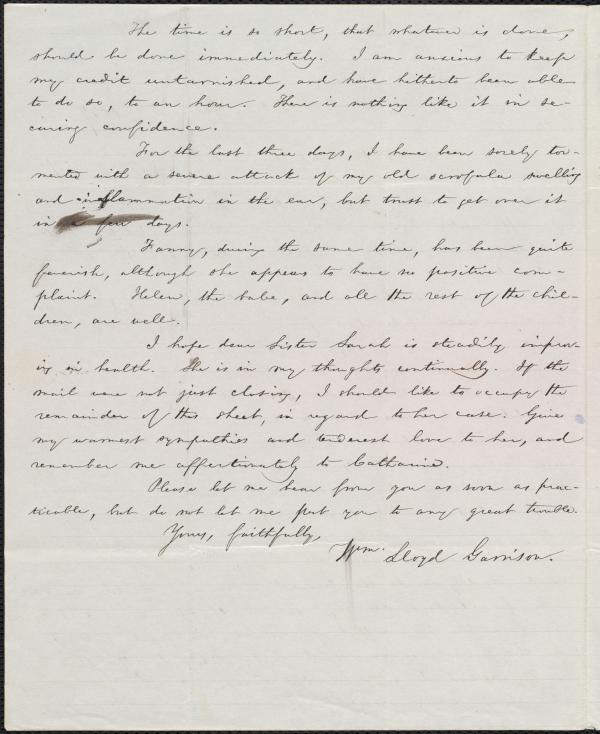 The time is so short, that whatever is done,
should be done immediately. I am anxious to keep
my credit untarnished, and have hitherto been able
to do so, to an hour. There is nothing like it in se-
curing confidence.
For the last three days, I have been sorely tor-
mented with a severe attack of my old scrofula swelling
and inflammation in the ear, but trust to get over it
in a few days.
Fanny, during the same time, has been quite
feverish, although she appears to have no positive com-
plaint. Helen, the babe, and all the rest of the chil-
dren, are well.
I hope dear Sister Sarah is steadily improv-
ing in health. She is in my thoughts continually. If the
mail were not just closing, I should like to occupy the
remainder of this sheet, in regard to her case. Give
my warmest sympathies and tenderest love to her, and
remember me affectionately to Catharine.
Please let me hear from you as soon as prac-
ticable, but do not let me put you to any great trouble.
Yours, faithfully,
Wm. Lloyd Garrison.